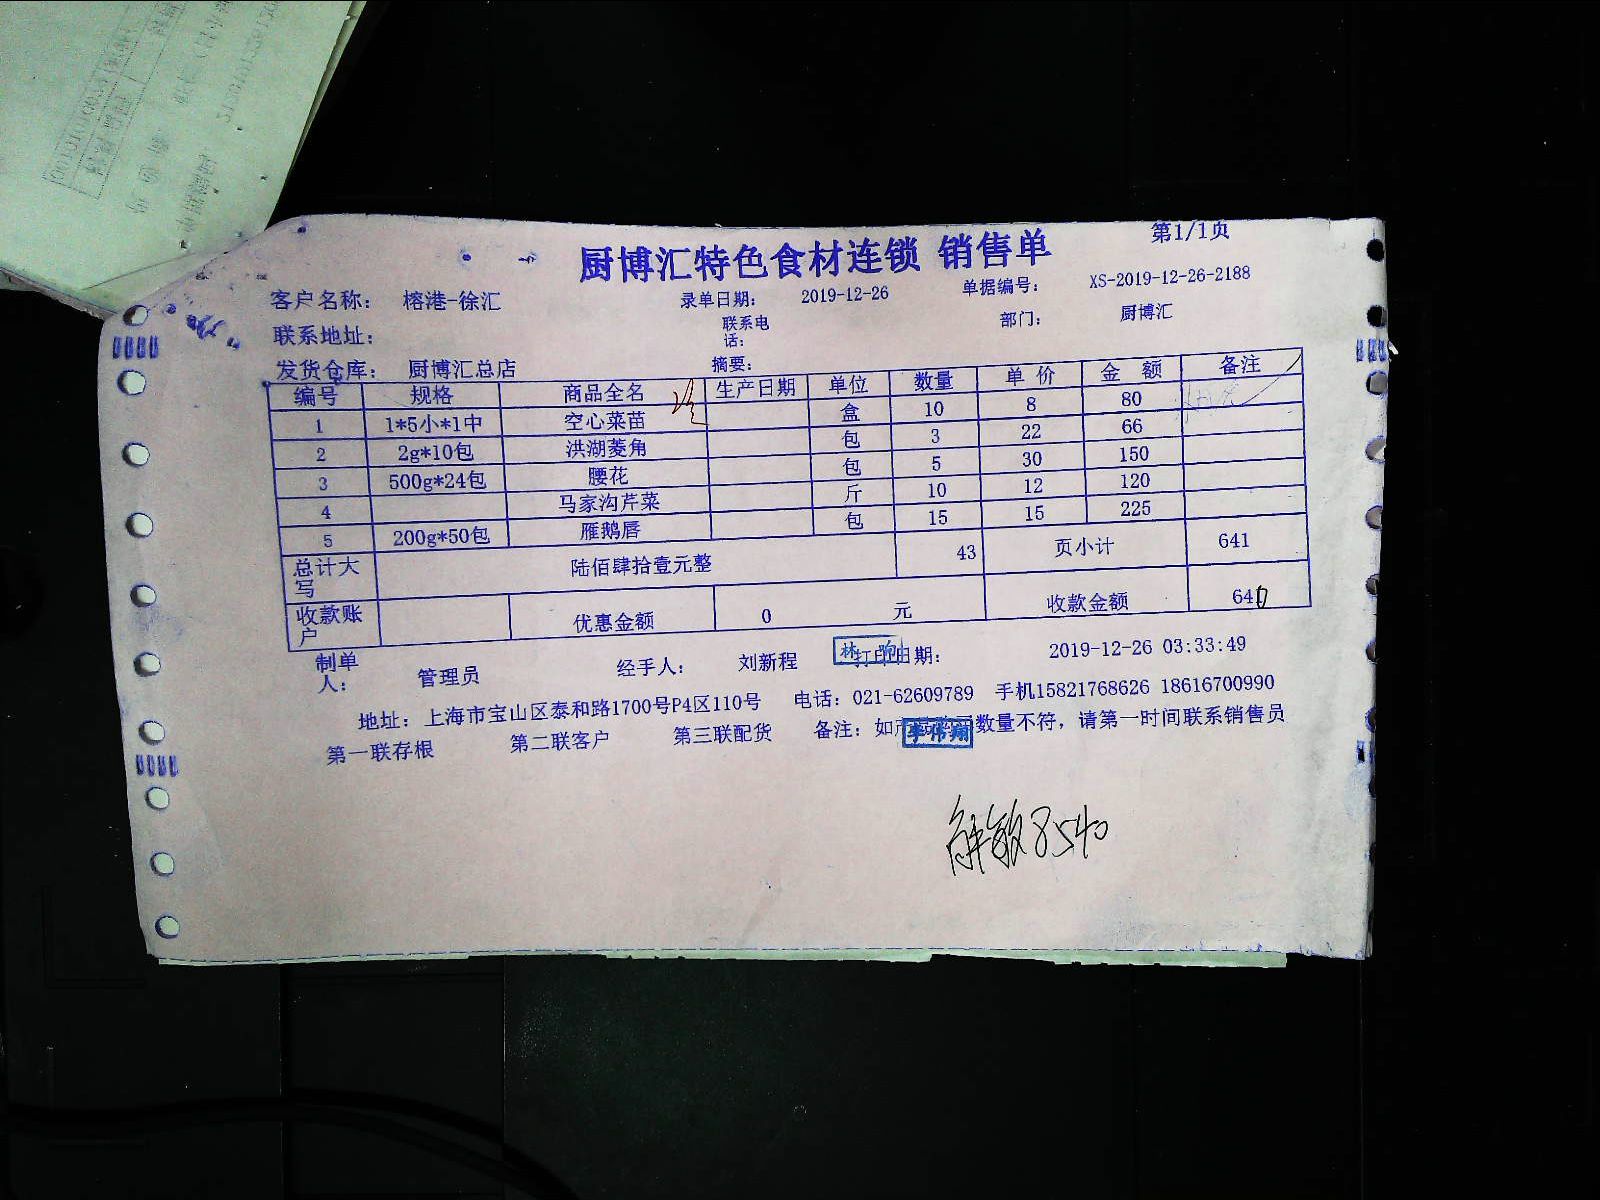 第1/1页
厨博汇特色食材连锁 销售单
客户名称: 榕港-徐汇 录单日期: 2019-12-26 单据编号: XS-2019-12-26-2188
联系地址: 联系电话: 部门: 厨博汇
发货仓库: 厨博汇总店 摘要:
编号 规格 商品全名 生产日期 单位 数量 单价 金额 备注
1 1*5小*1中 空心菜苗 盒 10 8 80
2 2g*10包 洪湖菱角 包 3 22 66
3 500g*24包 腰花 包 5 30 150
4 马家沟芹菜 斤 10 12 120
5 200g*50包 雁鹅唇 包 15 15 225
总计大写 陆佰肆拾壹元整 43 页小计 641
收款账户 优惠金额 0 元 收款金额 640
制单人: 管理员 经手人: 刘新程 打印日期: 2019-12-26 03:33:49
地址: 上海市宝山区泰和路1700号P4区110号 电话: 021-62609789 手机15821768626 18616700990
第一联存根 第二联客户 第三联配货 备注: 如产 数量不符, 请第一时间联系销售员
李伟翔
8540